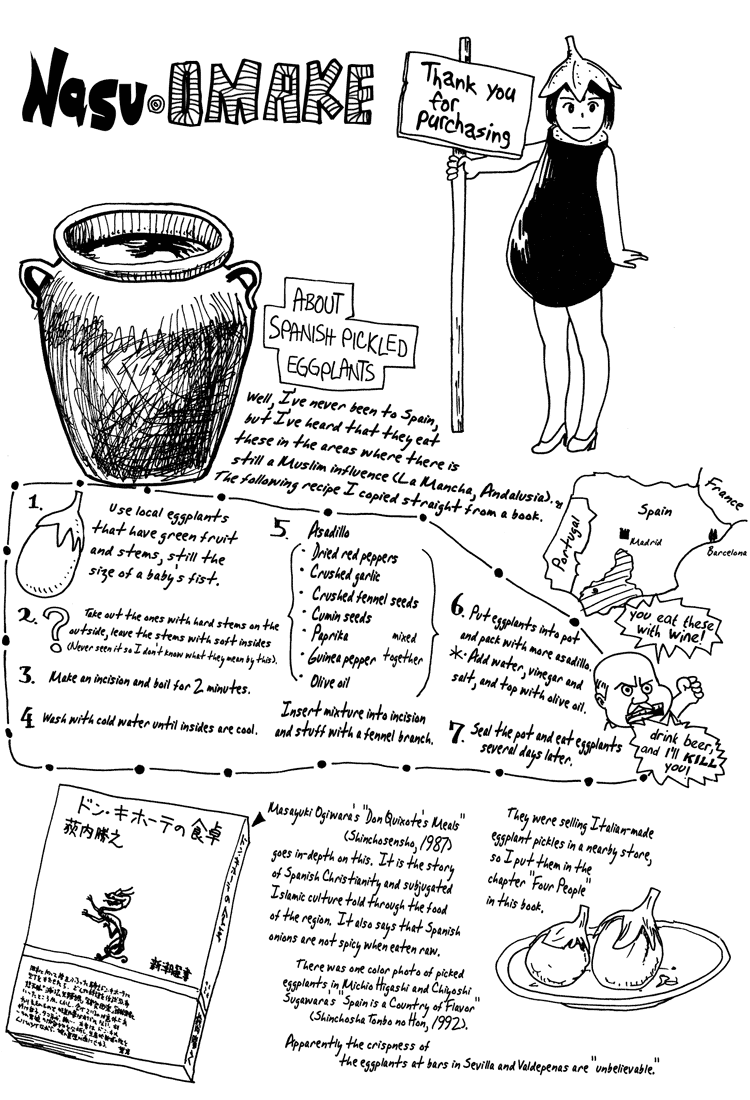 Nasu OMAKE
Thank you
for
purchasing
ABOUT
SPANISH PICKLED
EGGPLANTS
Well, I've never been to Spain,
but I've heard that they eat
these in the areas where there is
still a Muslim influence (La Mancha, Andalusia).
The following recipe I copied straight from a book.
1.
Use local eggplants
that have green fruit
and stems, still the
size of a baby's fist.
2.
?
Take out the ones with hard stems on the
outside, leave the stems with soft insides
(Never seen it so I don't know what they mean by this).
3. Make an incision and boil for 2 minutes.
4. Wash with cold water until insides are cool.
5. Asadillo
· Dried red peppers
· Crushed garlic
· Crushed fennel seeds
· Cumin seeds
· Paprika
· Guinea pepper
· Olive oil
mixed
together
Insert mixture into incision
and stuff with a fennel branch.
6. Put eggplants into pot
and pack with more asadillo.
* Add water, vinegar and
salt, and top with olive oil.
7. Seal the pot and eat eggplants
several days later.
Spain
France
Portugal
Madrid
Barcelona
you eat these
with wine!
drink beer,
and I'll KILL
you!
ドン・キホーテの食卓
荻内勝之
新潮選書
Masayuki Ogiwara's "Don Quixote's Meals"
(Shinchosensho, 1987)
goes in-depth on this. It is the story
of Spanish Christianity and subjugated
Islamic culture told through the food
of the region. It also says that Spanish
onions are not spicy when eaten raw.
There was one color photo of picked
eggplants in Michio Higashi and Chiyoshi
Sugawara's "Spain is a Country of Flavor"
(Shinchosha Tonbo no Hon, 1992).
Apparently the crispness of
the eggplants at bars in Sevilla and Valdepenas are "unbelievable."
They were selling Italian-made
eggplant pickles in a nearby store,
so I put them in the
chapter "Four People"
in this book.